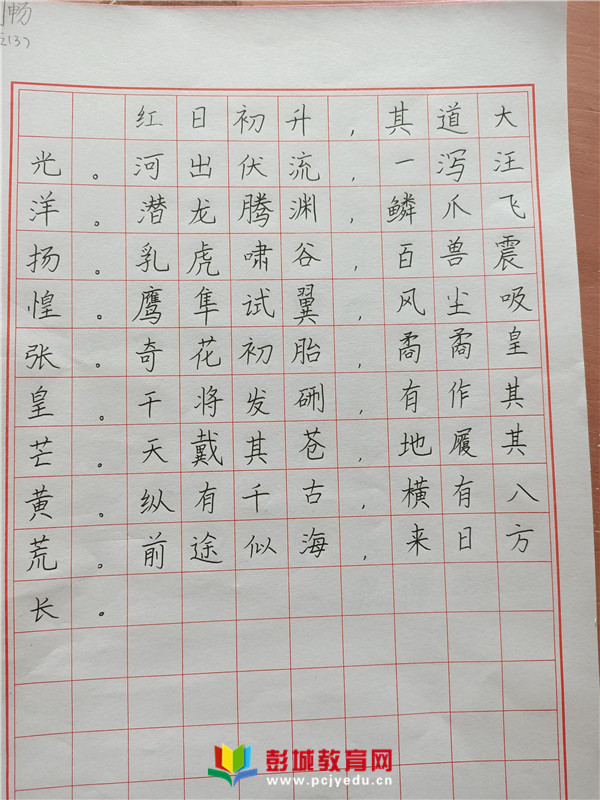 畅
红日初升，其道大
光。河出伏流，一泻汪
洋。潜龙腾渊，鳞爪飞
扬。乳虎啸谷，百兽震
惶。鹰隼试翼，风尘吸
张。奇花初胎，矞矞皇
皇。干将发硎，有作其
芒。天戴其苍，地履其
黄。纵有千古，横有八
荒。前途似海，来日方
长。
彭城教育网
www.pcjyedu.cn